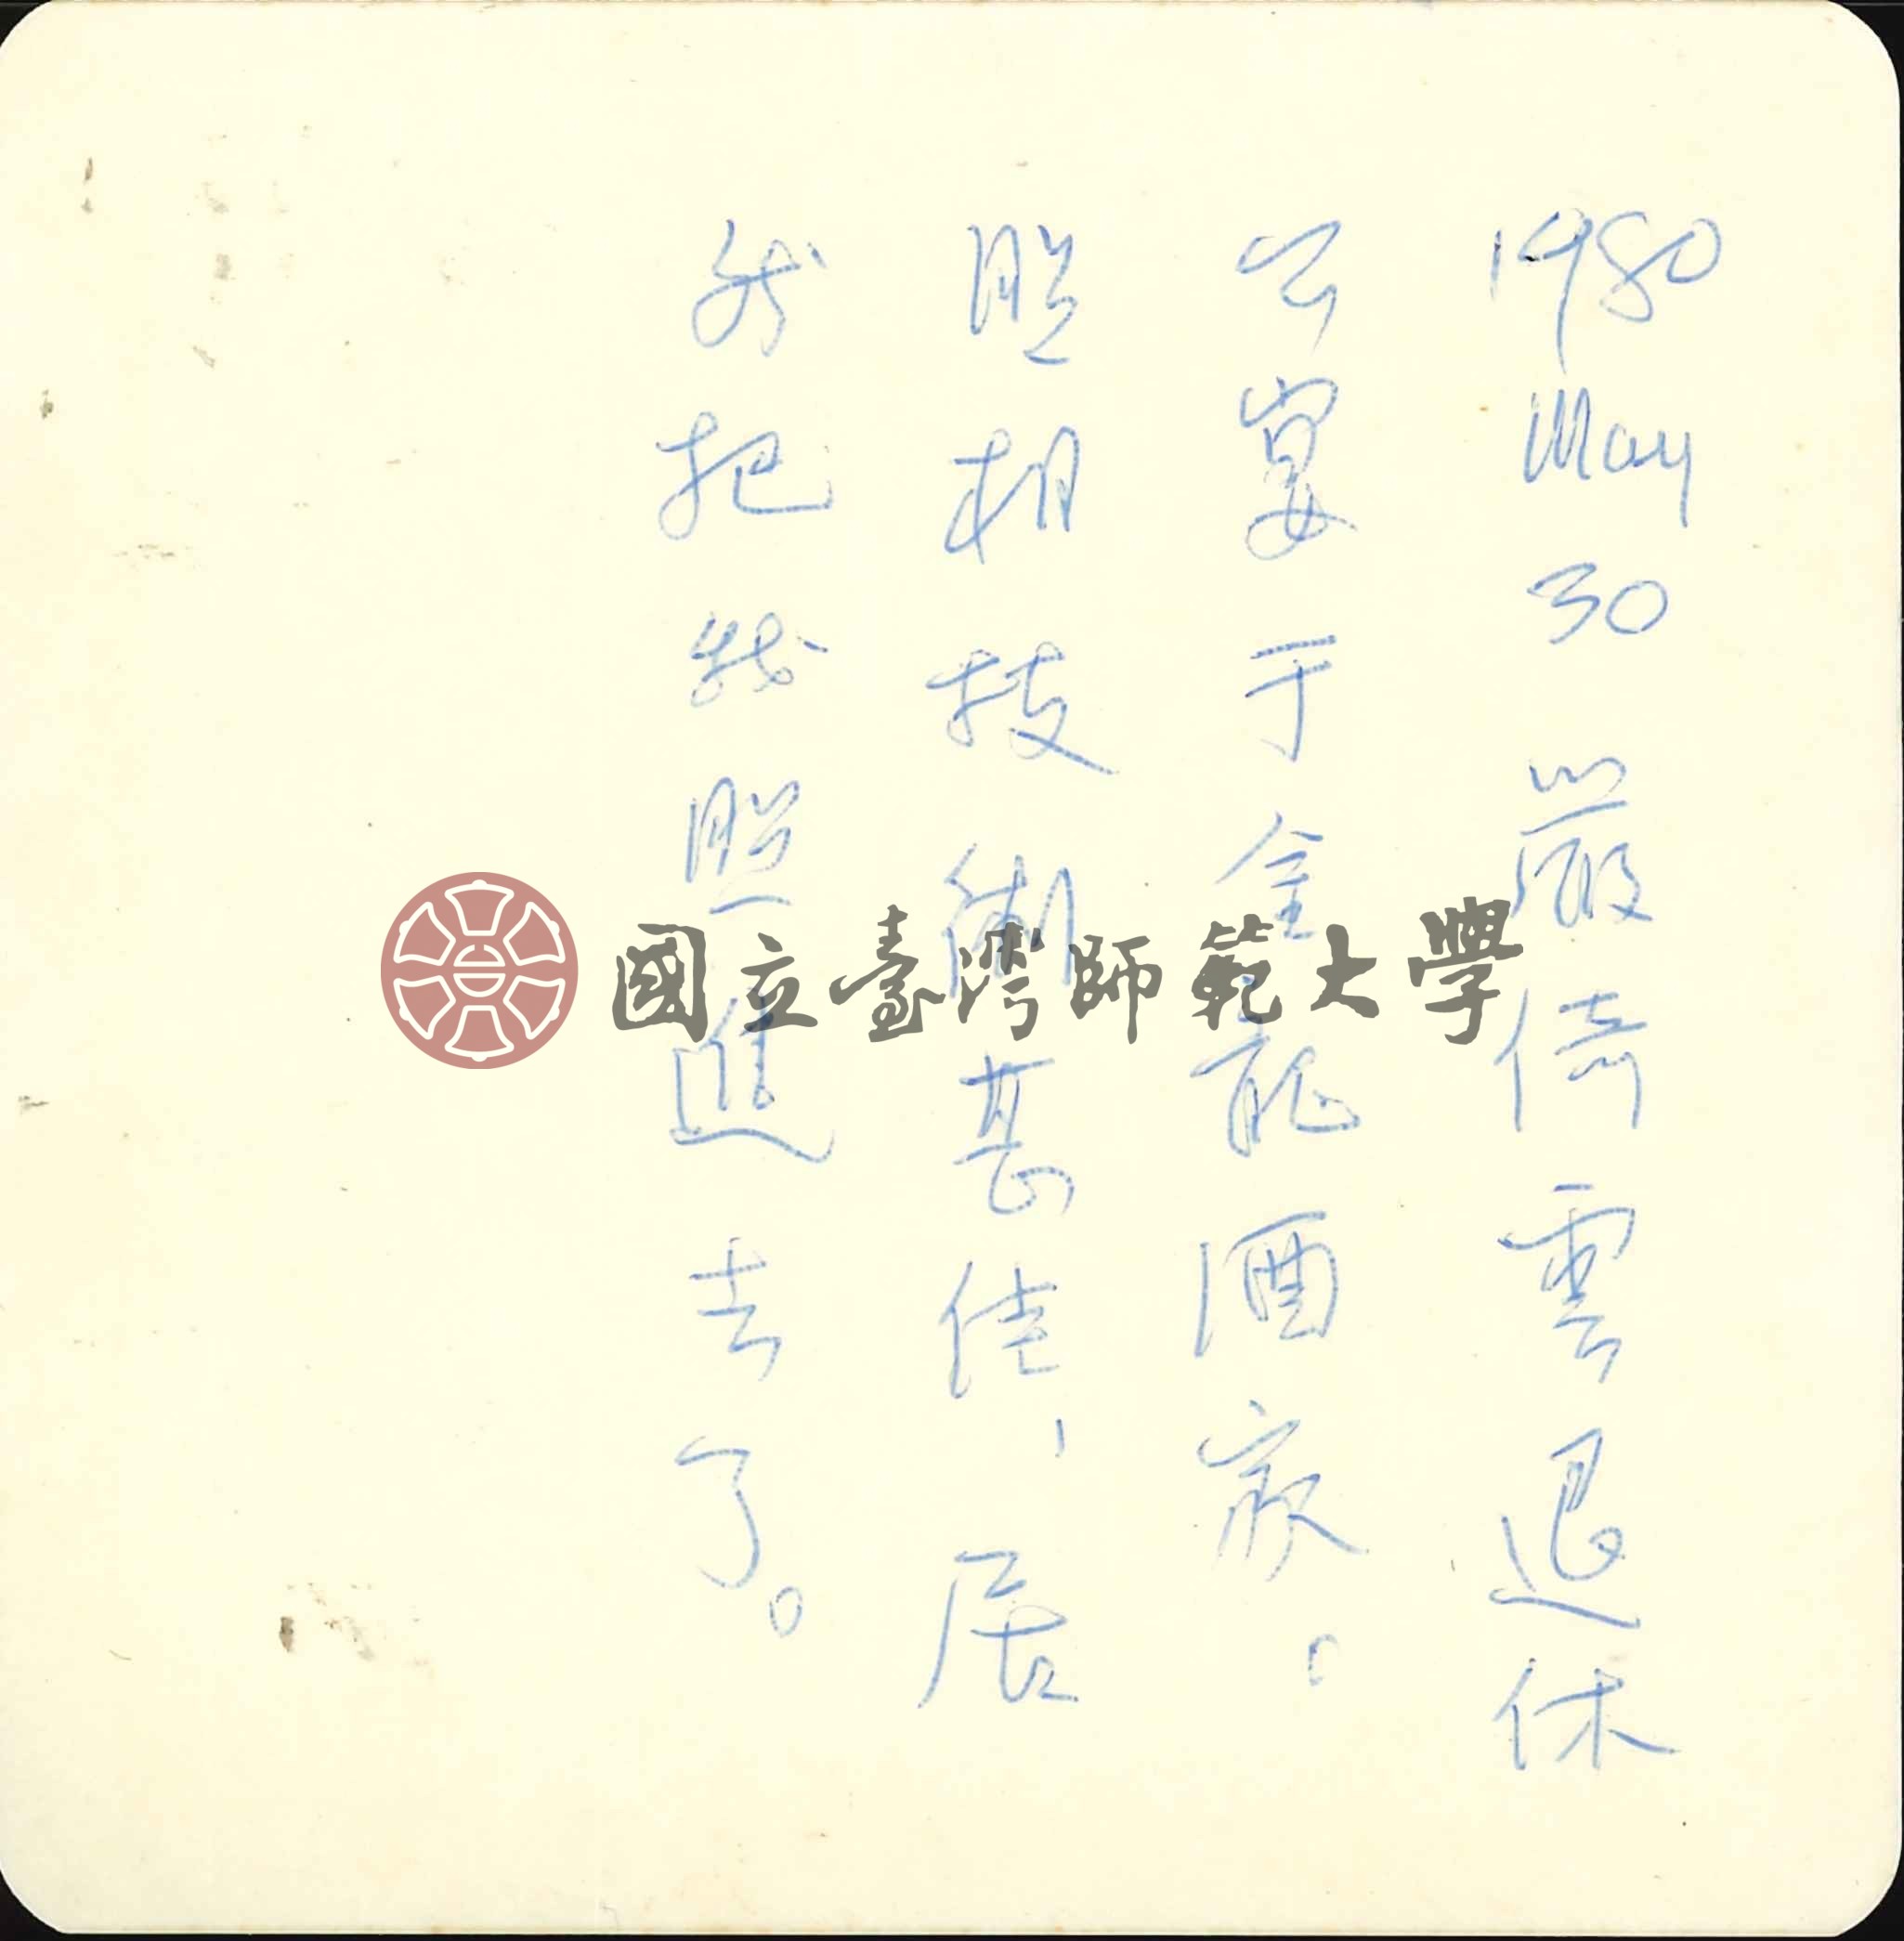 1980 May 30 嚴倚雲退休
公宴于金龍酒家。
照相技術甚佳，居
然把我照進去了。
國立臺灣師範大學